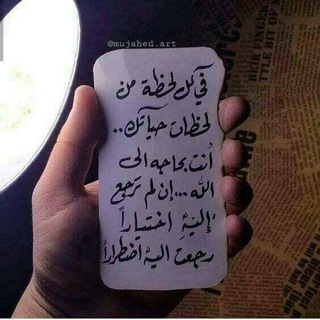 @mujahed.art
في كل لحظة من
لحظات حياتك..
أنت بحاجه الى
الله...إن لم ترجع
إليهِ اختياراً
رجعت اليه اضطراراً